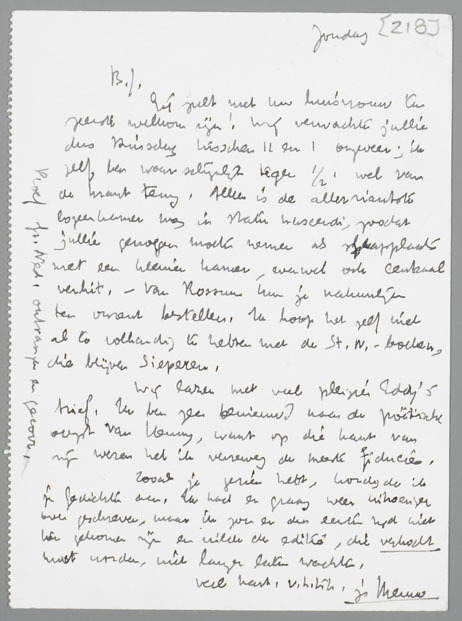 Zondag [218]
B.J.
Gij zult met uw huisvrouw ten
zeerste welkom zijn! Wij verwachten jullie
dus Dinsdag tusschen 12 en 1 ongeveer; ik
zelf ben waarschijnlijk tegen 1/2 1 wel van
de krant terug. Alleen is de allerriantste
logeerkamer nog in statu nascendi, zoodat
jullie genoegen moeten nemen als slaapplaats
met een kleine kamer, evenwel ook centraal
verhit. – Van Rossum kun je natuurlijk
ten onzent bestellen. Ik hoop het zelf niet
al te volhandig te hebben met de St. N. – boeken,
die blijven sieperen.
Wij lazen met veel pleizier Eddy's
brief. Ik ben zeer benieuwd naar de poëtische
oogst van, want op die kant van
zijn wezen heb ik verreweg de meeste fiducie.
Zooals je gezien hebt, kondigde ik
je gedichten aan. Ik had er graag weer uitvoeriger
over geschreven, maar ik zou er dan eerst tijd niet
toe gekomen zijn en wilde de editie, die verkocht
moet worden, niet langer laten wachten.
veel hart., je Menno
Proef Gr. Ned. ontvangen en gecorr.